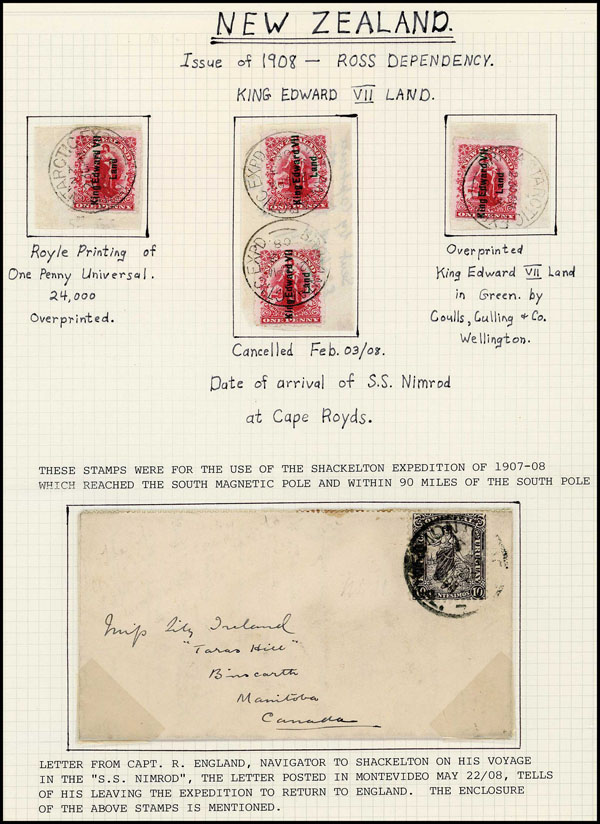 NEW ZEALAND.
Issue of 1908 — ROSS DEPENDENCY.
KING EDWARD VII LAND.
ANTARCTIC EX
King Edward VII
Land
ONE PENNY
C EXPD
King Edward VII
Land
ONE PENNY
C EXPD
King Edward VII
Land
ONE PENNY
TARCTIC EX
King Edward VII
Land
ONE PENNY
Royle Printing of
One Penny Universal.
24,000
Overprinted.
Cancelled Feb. 03/08.
Overprinted
King Edward VII Land
in Green. by
Coulls, Culling & Co.
Wellington.
Date of arrival of S.S. Nimrod
at Cape Royds.
THESE STAMPS WERE FOR THE USE OF THE SHACKELTON EXPEDITION OF 1907-08
WHICH REACHED THE SOUTH MAGNETIC POLE AND WITHIN 90 MILES OF THE SOUTH POLE
URUGUAY
10
Miss Lily Ireland
"Taras Hill"
Binscarth
Manitoba
Canada
LETTER FROM CAPT. R. ENGLAND, NAVIGATOR TO SHACKELTON ON HIS VOYAGE
IN THE "S.S. NIMROD", THE LETTER POSTED IN MONTEVIDEO MAY 22/08, TELLS
OF HIS LEAVING THE EXPEDITION TO RETURN TO ENGLAND. THE ENCLOSURE
OF THE ABOVE STAMPS IS MENTIONED.